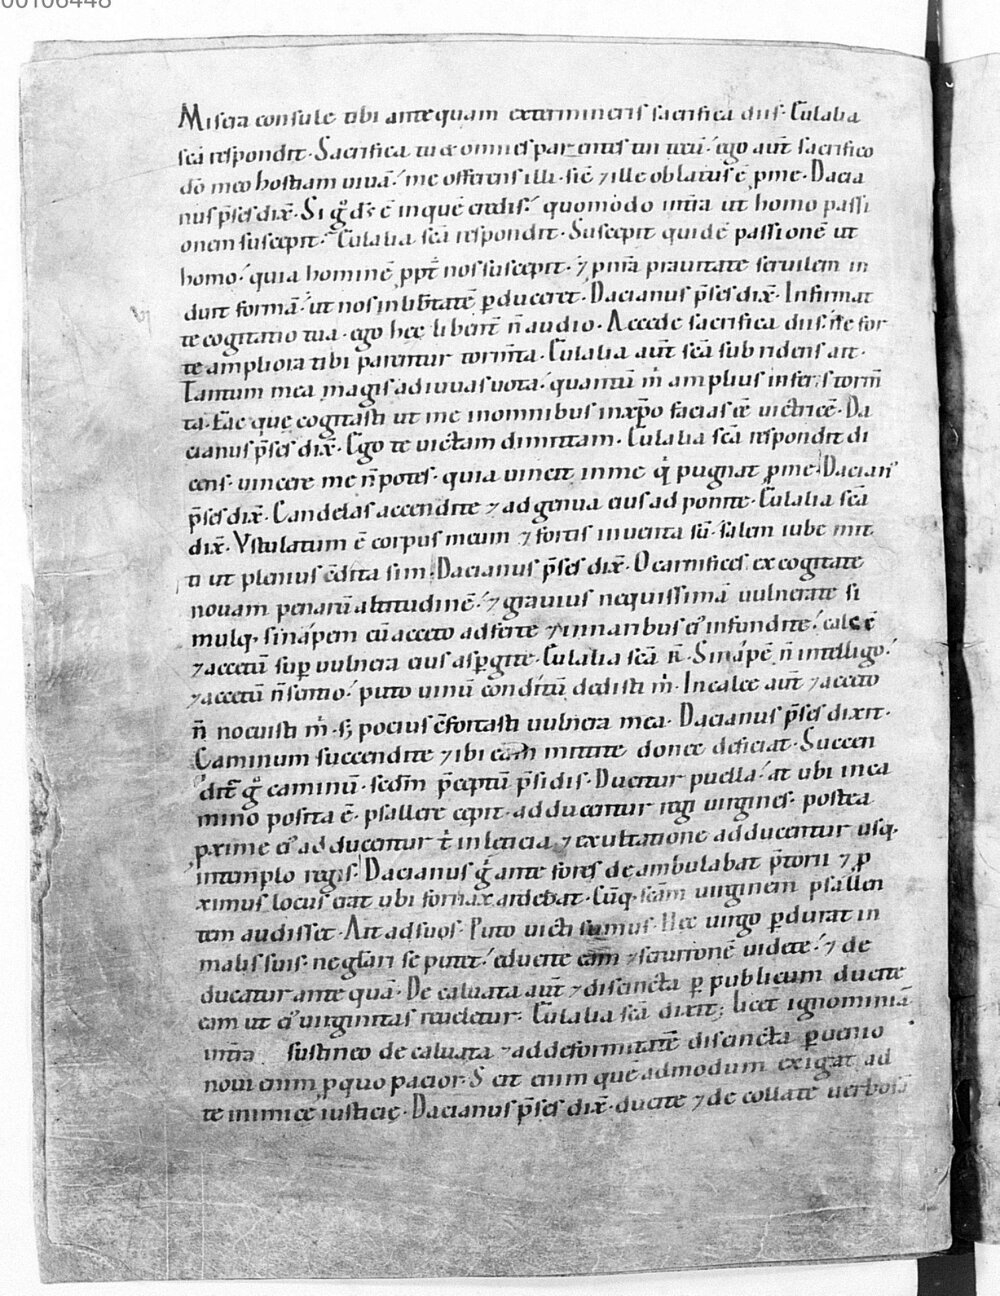 00106448
Misera consule tibi antequam extermineris sacrifica diis· Eulalia
scā respondit· Sacrifica tu & omnes parentes tui uecū· ego aut̄ sacrifico
dō meo hostiam uiuā· me offerens illi· sic̄ ⁊ ille oblatus ē ꝓ me· Dacia
nus p̄ses dix̄· Si g̊ ds̄ ē in quē credis· quomodo intr̄a ut homo passi
onem suscepit· Eulalia scā respondit· Suscepit quidē passionē ut
homo· quia hominē ppt̄ nos suscepit· ⁊ ꝓ nr̄a prauitate seruilem in
duit formā· ut nos in lib̄tatē ꝑduceret· Dacianus p̄ses dix̄· Infirmat̄
te cogitatio tua· ego hec libent̄ n̄ audio· Accede sacrifica diis· ne for
te ampliora tibi parentur torm̄ta· Eulalia aut̄ scā subridens ait·
Tantum mea magis adiuuas uota· quantū m̄ amplius inferis torm̄
ta· Fac que cogitasti ut me in omnibus in xp̄o facias eē uictricē· Da
cianus p̄ses dix̄· Ego te uictam dimittam· Eulalia scā respondit di
cens· uincere me n̄ potes· quia uincit in me q̇ pugnat ꝓ me· Dacian᾽
p̄ses dix̄· Candelas accendite ⁊ ad genua eius ad ponite· Eulalia scā
dix̄· Vstulatum ē corpus meum ⁊ fortis inuenta sū· salem iube mit
ti ut plenius c̄dita sim· Dacianus p̄ses dix̄· O carnifices excogitate
nouam penarū altitudinē· ⁊ grauius nequissimā uulnerate si
mulq· sinapem cū aceto adferte ⁊ in naribus ei᾽ infundite· calcē
⁊ acetū sup̄ uulnera eius aspgite· Eulalia scā r̄· Sinapē n̄ intelligo·
⁊ acetū n̄ sentio· puto uinū conditū dedisti m̄· In calce aut̄ ⁊ aceto
n̄ nocuisti m̄· s; pocius c̄fortasti uulnera mea· Dacianus p̄ses dixit·
Caminum succendite ⁊ ibi eam mittite donec deficiat· Succen
dit̄ g̊ caminū· sedm̄ p̄ceptū p̄sidis· Ducitur puella· at ubi in ca
mino posita ē· psallere cepit· adducentur regi uirgines· postea
ꝓxime ei᾽ adducentur t̄ in leticia ⁊ exultatione adducentur usq·
in templo regis· Dacianus g̊ ante fores deambulabat p̄torii ⁊ ꝓ
ximus locus erat ubi fornax ardebat· Cūq· scām uirginem psallen
tem audisset· Ait ad suos· Puto uicti sumus· Hec uirgo ꝑdurat in
malis suis· ne glāri se putet· educite eam ⁊ scurrionē uidete· ⁊ de
ducatur ante quā· De caluata aut̄ ⁊ discincta ꝑ publicum ducite
eam ut ei᾽ uirginitas reueletur· Eulalia scā dixit; licet ignominiā
intr̄a sustineo de caluata ⁊ ad deformitatē discincta ꝑuenio
noui enim ꝓ quo pacior· Scit enim quē admodum exigat ad
te inimice iusticię· Dacianus p̄ses dix̄· ducite ⁊ de collate uerbosā